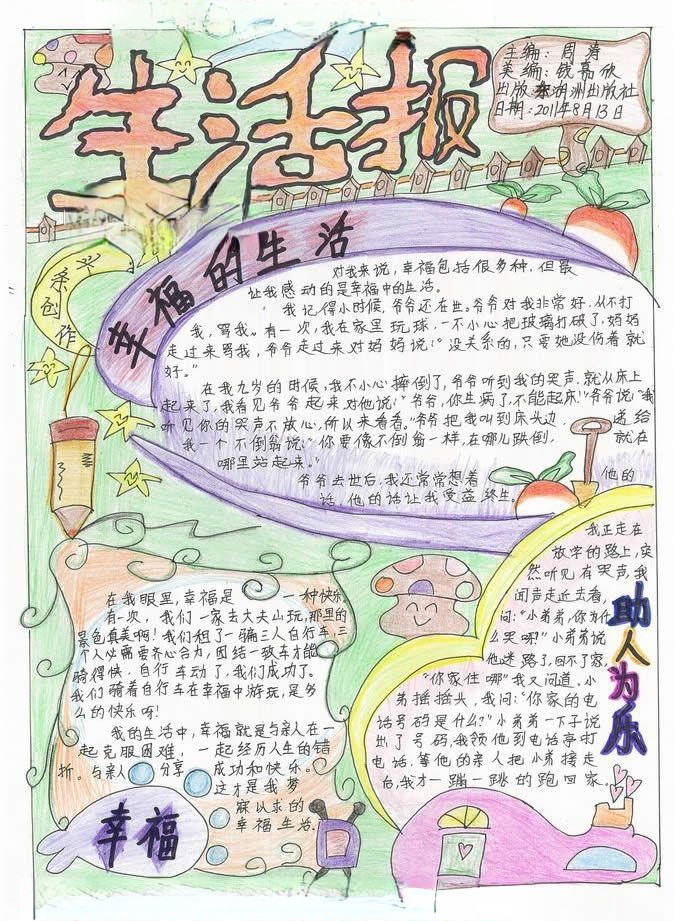 生活报
主编：周涛
美编：钱嘉欣
出版：东润洲出版社
日期：2011年8月13日
幸福的生活
亲创作
对我来说，幸福包括很多种，但最
让我感动的是幸福中的生活。
我记得小时候，爷爷还在世。爷爷对我非常好，从不打
我，骂我。有一次，我在家里玩球，一不小心把玻璃打破了，妈妈
走过来骂我，爷爷走过来对妈妈说：“没关系的，只要她没伤着就
好。”
在我九岁的时候，我不小心摔倒了，爷爷听到我的哭声，就从床上
起来了，我看见爷爷起来对他说：“爷爷，你生病了，不能起床！”爷爷说：“我
听见你的哭声不放心，所以来看看。”爷爷把我叫到床头边，递给
我一个不倒翁说：“你要像不倒翁一样，在哪儿跌倒，就在
哪里站起来。”
爷爷去世后，我还常常想着他的
话，他的话让我受益终生。
在我眼里，幸福是一种快乐
有一次，我们一家去大夫山玩，那里的
景色真美啊！我们租了一骑三人自行车，三
个人必需要齐心合力，团结一致车才能
骑得快，自行车动了，我们成功了。
我们骑着自行车在幸福中游玩，是多
么的快乐呀！
我的生活中，幸福就是与亲人在一
起克服困难，一起经历人生的错
折。与亲人分享成功和快乐。
这才是我梦
寐以求的
幸福生活.
幸福
助人为乐
我正走在
放学的路上，突
然听见有哭声，我
闻声走近去看，
问：“小弟弟，你为什
么哭呀？”小弟弟说
他迷路了，回不了家，
“你家住哪”我又问道。小
弟摇摇头，我问：“你家的电
话号码是什么？”小弟弟一下子说
出了号码，我领他到电话亭打
电话，等他的亲人把小弟接走
后，我才一蹦一跳的跑回家.